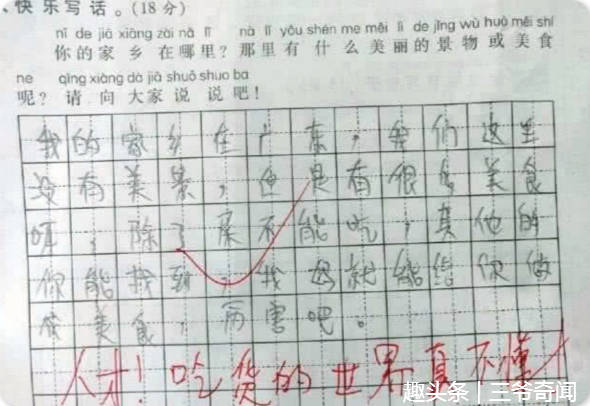 、快乐写话。(18分)
nǐ de jiā xiāng zài nǎ lǐ nà lǐ yǒu shén me měi lì de jǐng wù huò měi shí
你的家乡在哪里?那里有什么美丽的景物或美食
ne qǐng xiàng dà jiā shuō shuo ba
呢?请向大家说说吧!
我的家乡在广东,我们这里
没有美景,但是有很多美食
,除了不能吃,其他的
你能找到,我就能给你做
成美食,厉害吧。
人才!吃货的世界真不懂
趣头条 | 三爷奇闻